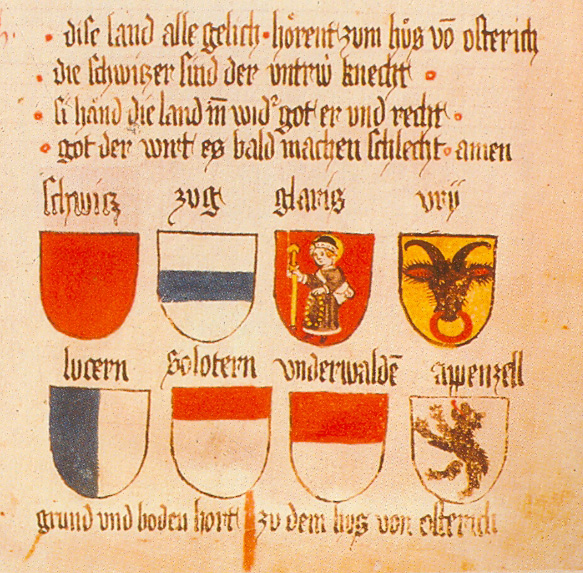 dise land alle gelich · hörent zum hůs vō osterich
· die schwitzer sind der vntrüw knecht ·
· si händ die land in̄ wid² got er vnd recht ·
· got der wirt es bald machen schlecht · amen
schwitz zug glaris vrij
lucern Solotern vnderwaldē appenzell
grund vnd boden hort zu dem hus von osterich